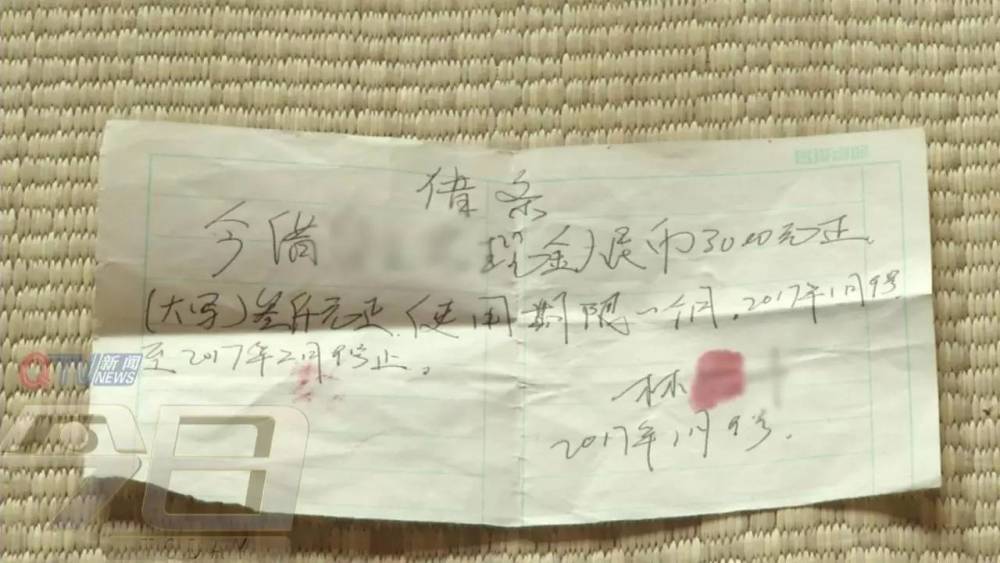 借条
今借 现金人民币3000元正.
(大写)叁仟元正.使用期限一个月.2017年1月9号
至2017年2月9号止。
林
2017年1月9号.
QTV 新闻 NEWS
今日
TODAY